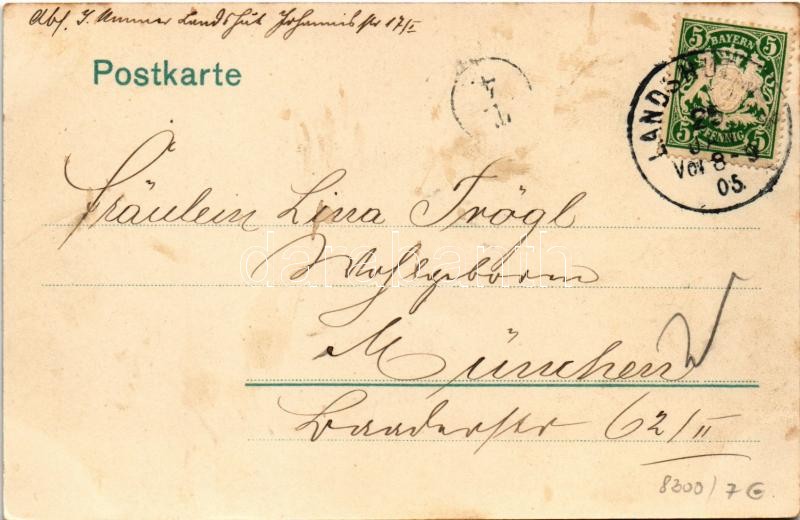 Abs. J. Ummer Landshut Johannisstr 17/II
Postkarte
5 BAYERN 5
5 PFENNIG 5
LANDSHUT
Vor 8-9
05.
Fräulein Lina Trögl
Wohlgeboren
München
Baaderstr 62/II
8300/7 €
darabanth